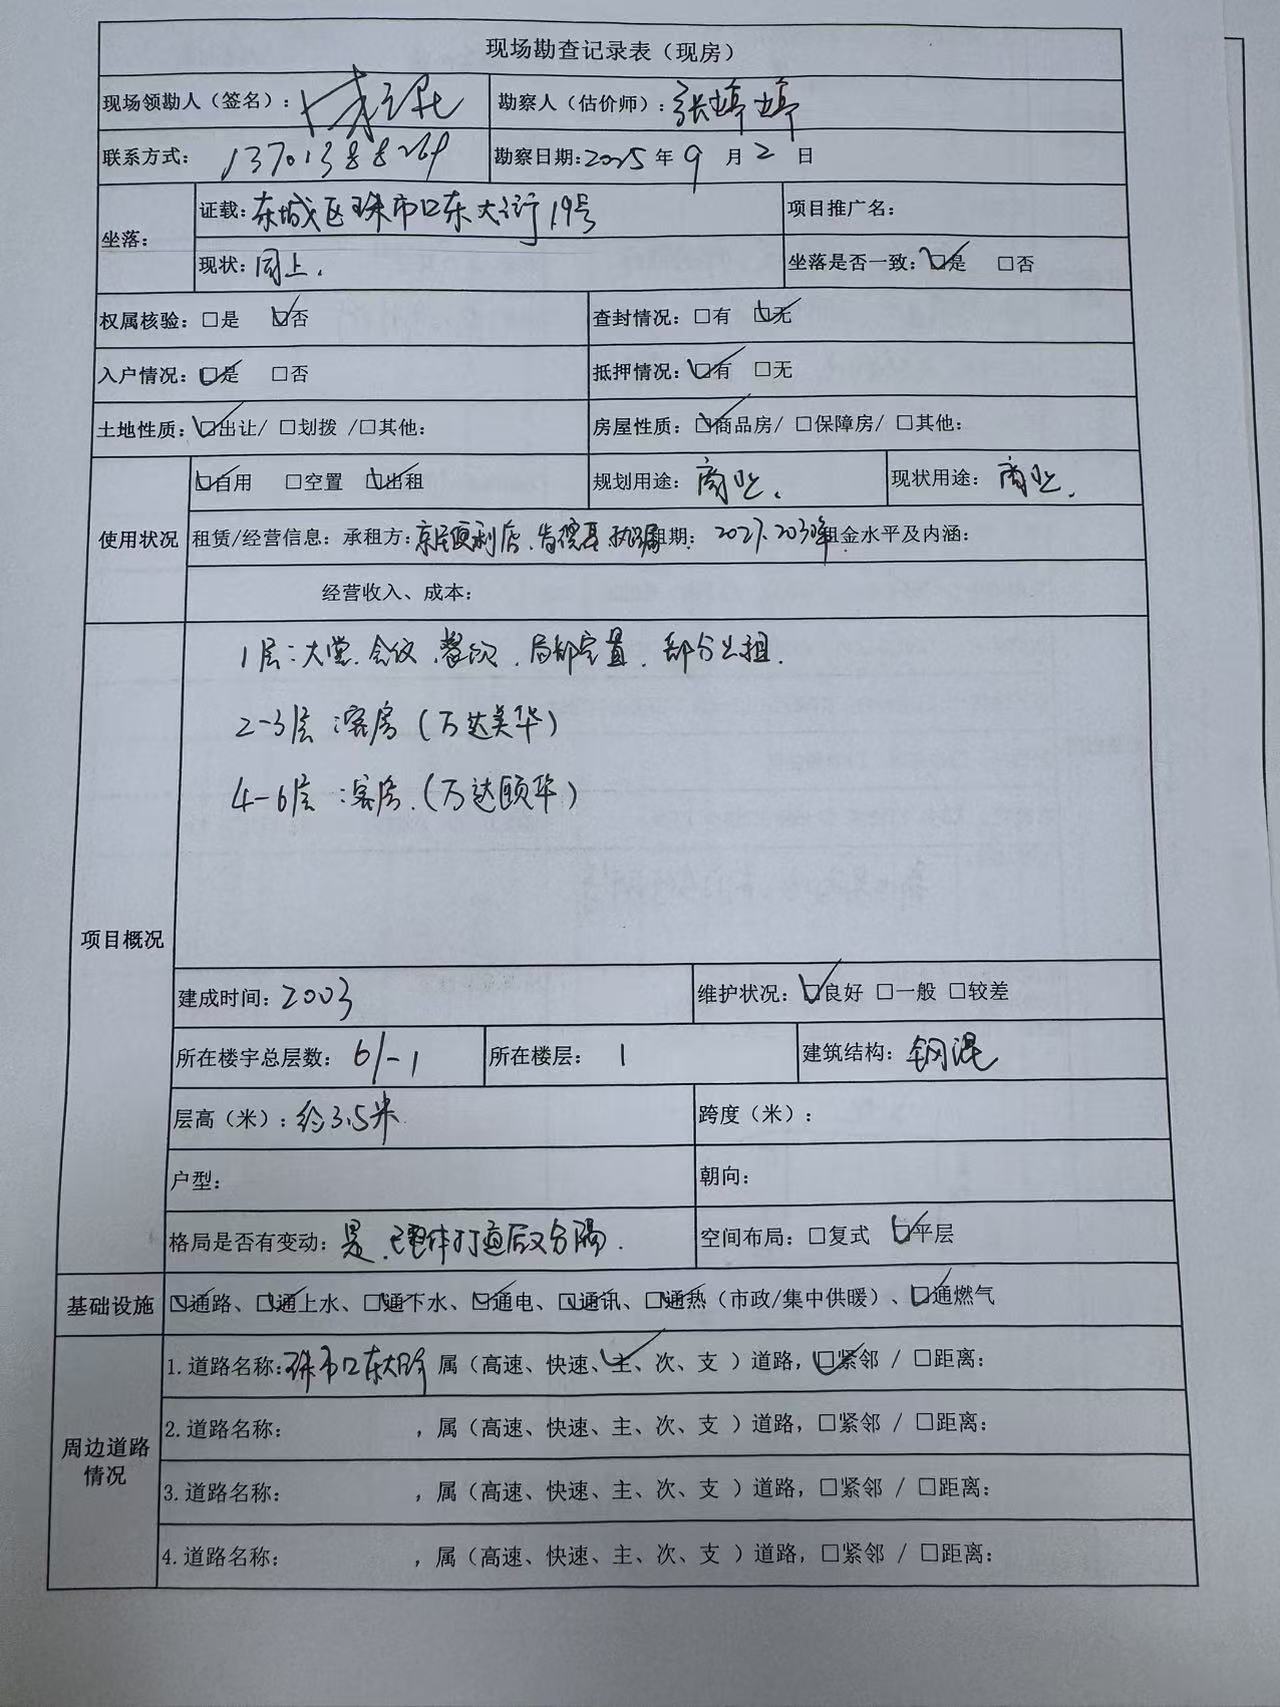 现场勘查记录表（现房）
现场领勘人（签名）： 勘察人（估价师）：张婷婷
联系方式：13701388269 勘察日期：2025年9月2日
坐落：
证载：东城区珠市口东大街19号 项目推广名：
现状：同上. 坐落是否一致：☑是 □否
权属核验：□是 ☑否 查封情况：□有 ☑无
入户情况：☑是 □否 抵押情况：☑有 □无
土地性质：☑出让/ □划拨 /□其他： 房屋性质：☑商品房/ □保障房/ □其他：
使用状况
☑自用 □空置 ☑出租 规划用途：商业. 现状用途：商业.
租赁/经营信息：承租方：便利店、 租期： 租金水平及内涵：
经营收入、成本：
项目概况
1层：大堂.会议.餐饮.局部空置.部分出租.
2-3层：客房（万达美华）
4-6层：客房.（万达颐华）
建成时间：2003 维护状况：☑良好 □一般 □较差
所在楼宇总层数：6/-1 所在楼层：1 建筑结构：钢混
层高（米）：约3.5米 跨度（米）：
户型： 朝向：
格局是否有变动：是.已整体打通后又分隔. 空间布局：□复式 ☑平层
基础设施 ☑通路、☑通上水、☑通下水、☑通电、☑通讯、☑通热（市政/集中供暖）、☑通燃气
周边道路情况
1.道路名称：珠市口东大街 属（高速、快速、主、次、支 ）道路，☑紧邻 / □距离：
2.道路名称： ，属（高速、快速、主、次、支 ）道路，□紧邻 / □距离：
3.道路名称： ，属（高速、快速、主、次、支 ）道路，□紧邻 / □距离：
4.道路名称： ，属（高速、快速、主、次、支 ）道路，□紧邻 / □距离：